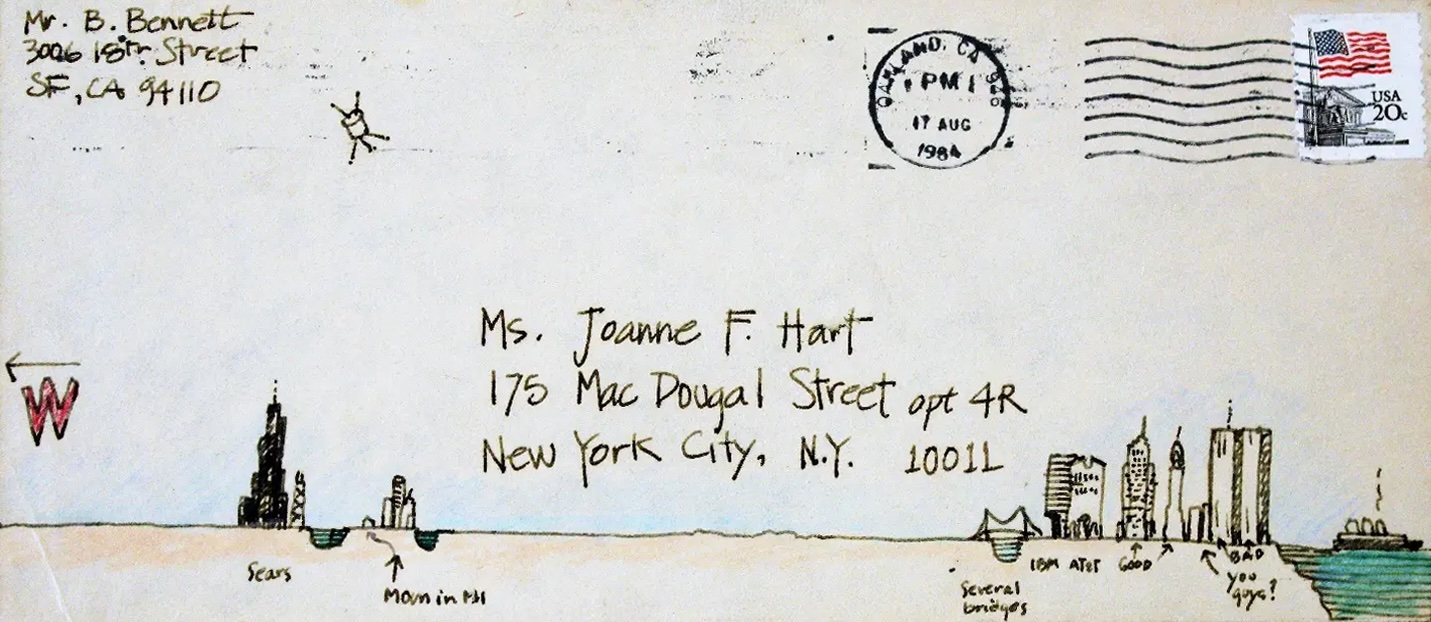 Mr. B. Bennett
3006 18th Street
SF, CA 94110
OAKLAND, CA
PM
17 AUG
1984
USA
20c
Ms. Joanne F. Hart
175 Mac Dougal Street apt 4R
New York City, N.Y. 10011
W
Sears
Mom in MI
Several
bridges
IBM AT&T GOOD
BAD
you
guys?